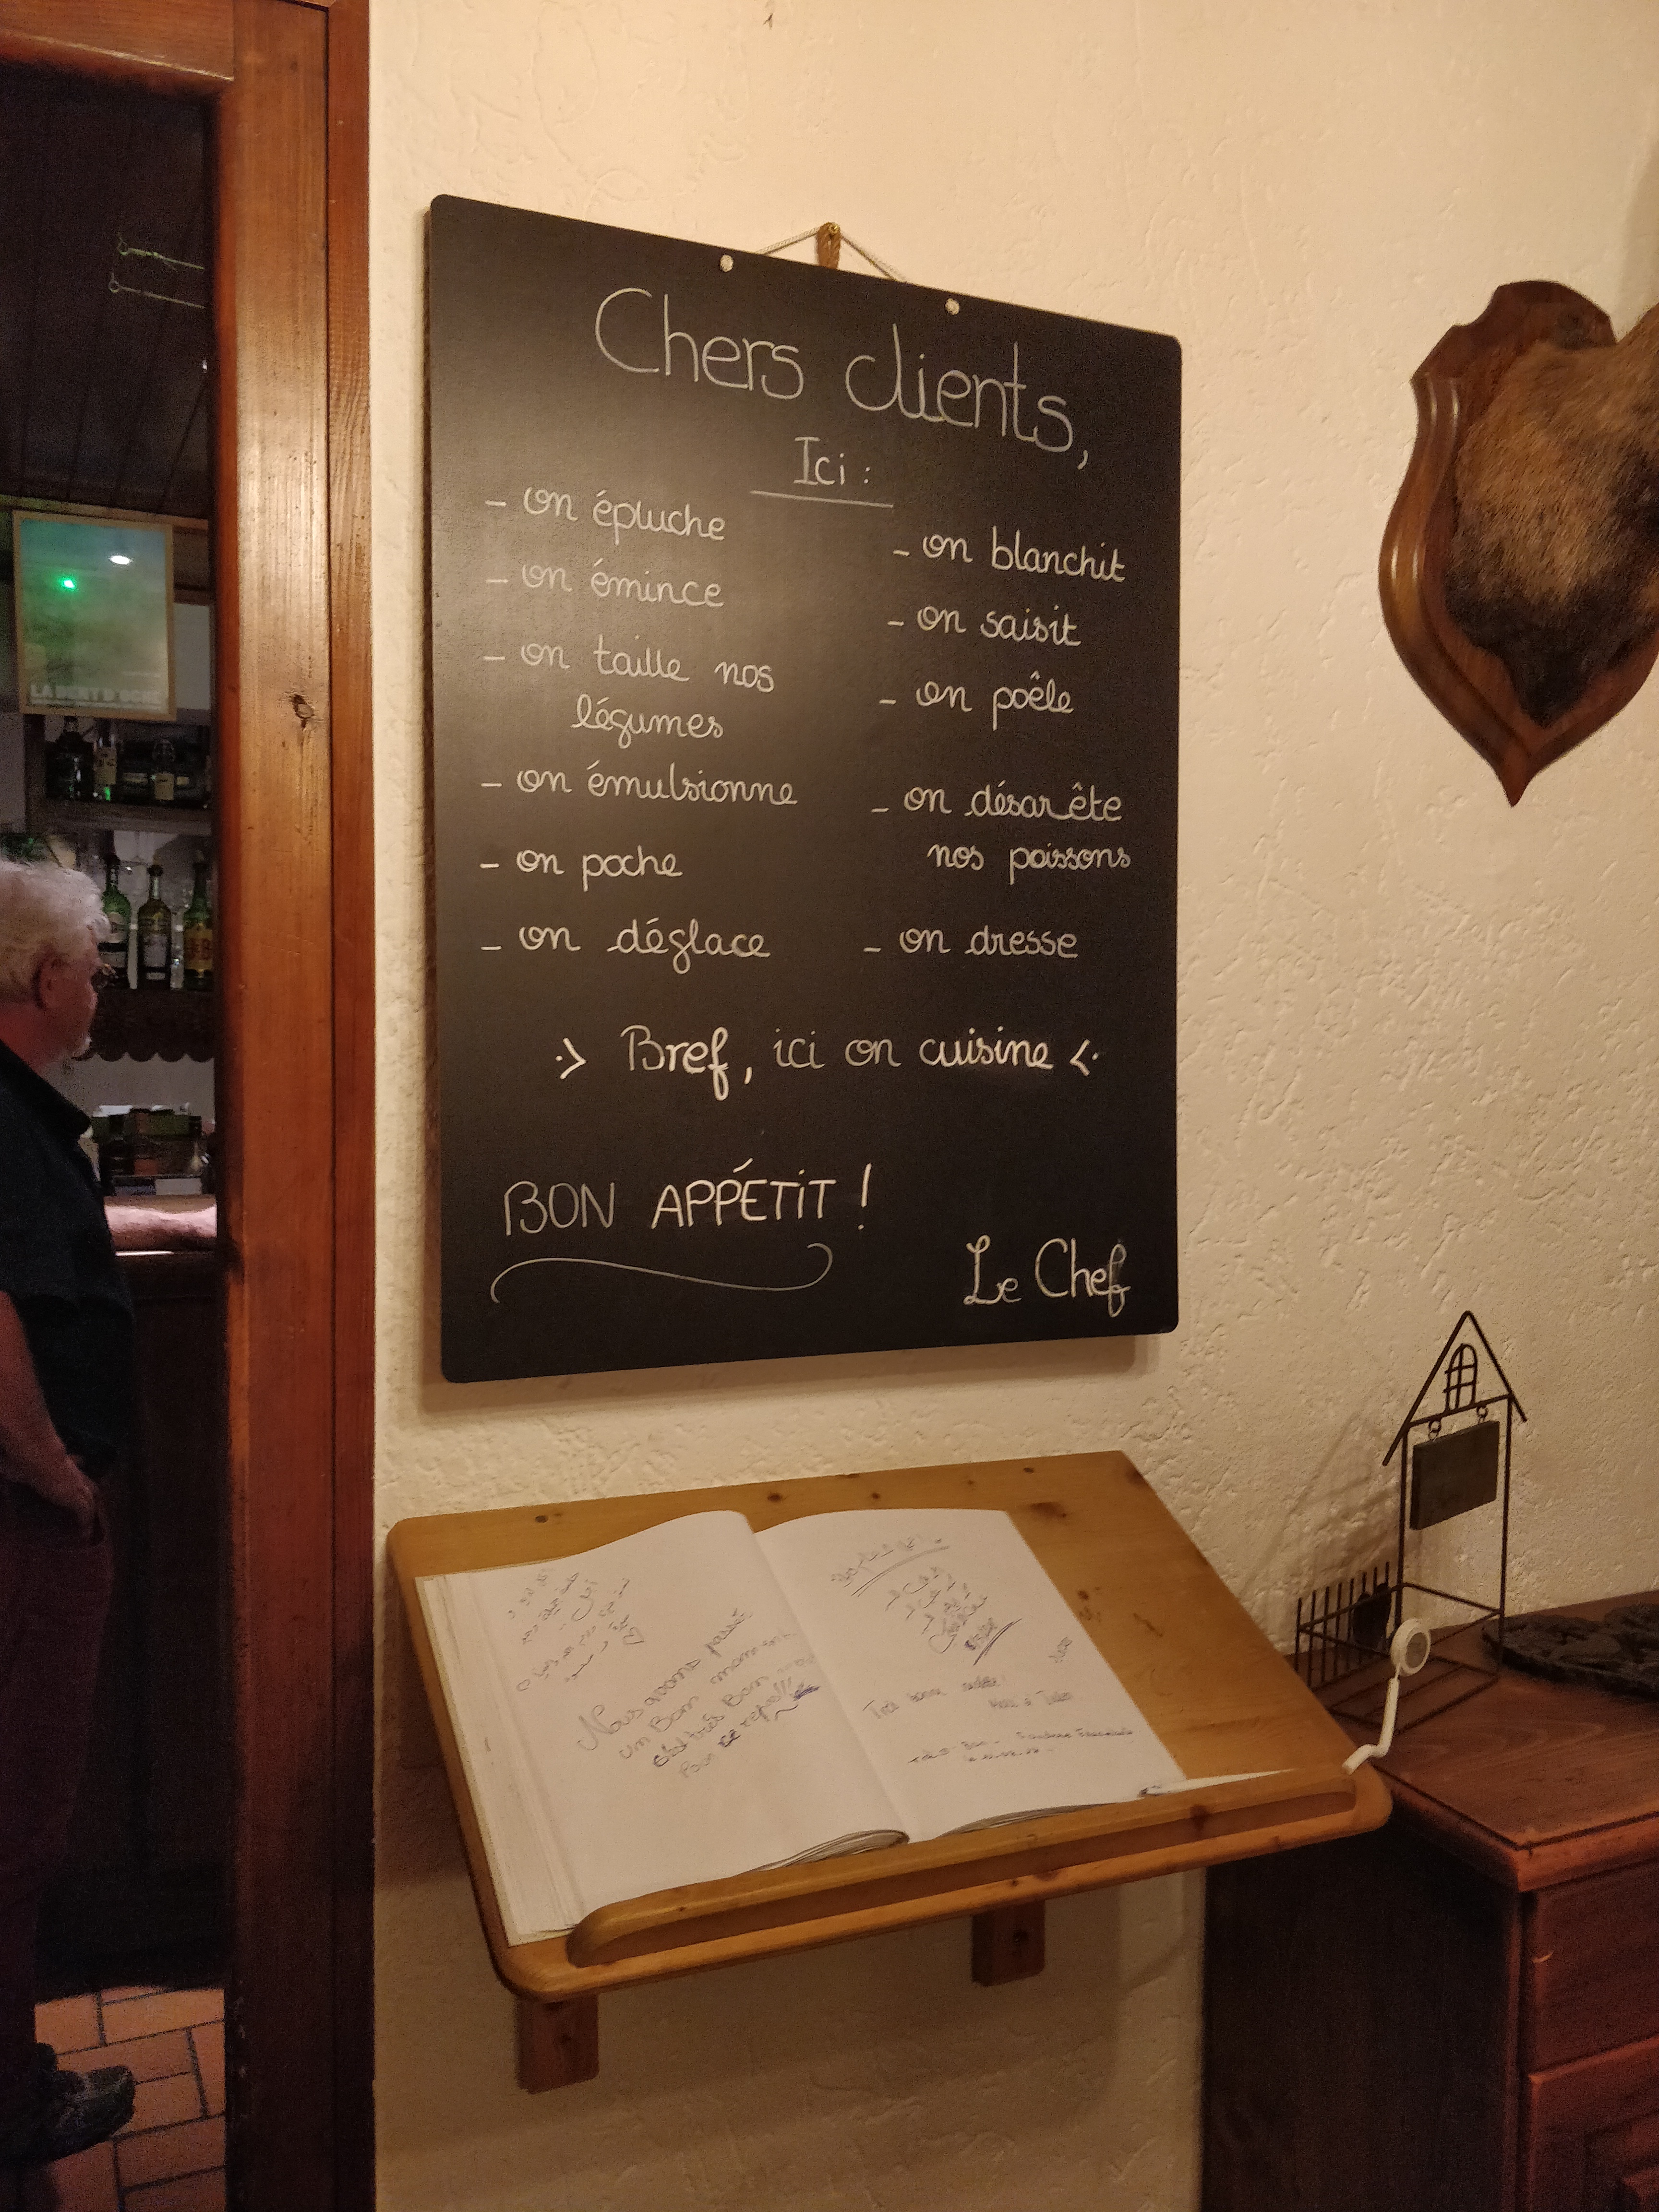 Chers clients,
Ici :
- on épluche
- on émince
- on taille nos
légumes
- on émulsionne
- on poche
- on déglace
- on blanchit
- on saisit
- on poêle
- on désarête
nos poissons
- on dresse
Bref, ici on cuisine
BON APPÉTIT !
Le Chef
LA DENT D'OCHE
Nous avons passé
un Bon moment
très Bon